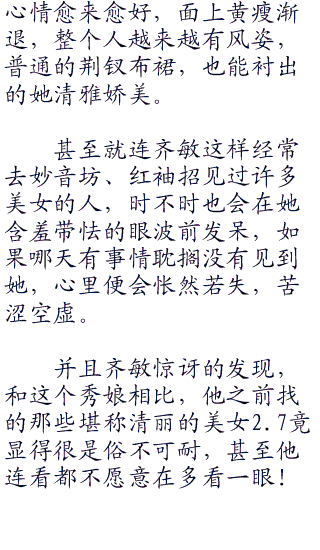 心情愈来愈好，面上黄瘦渐
退，整个人越来越有风姿，
普通的荆钗布裙，也能衬出
的她清雅娇美。
甚至就连齐敏这样经常
去妙音坊、红袖招见过许多
美女的人，时不时也会在她
含羞带怯的眼波前发呆，如
果哪天有事情耽搁没有见到
她，心里便会怅然若失，苦
涩空虚。
并且齐敏惊讶的发现，
和这个秀娘相比，他之前找
的那些堪称清丽的美女2.7竟
显得很是俗不可耐，甚至他
连看都不愿意在多看一眼！